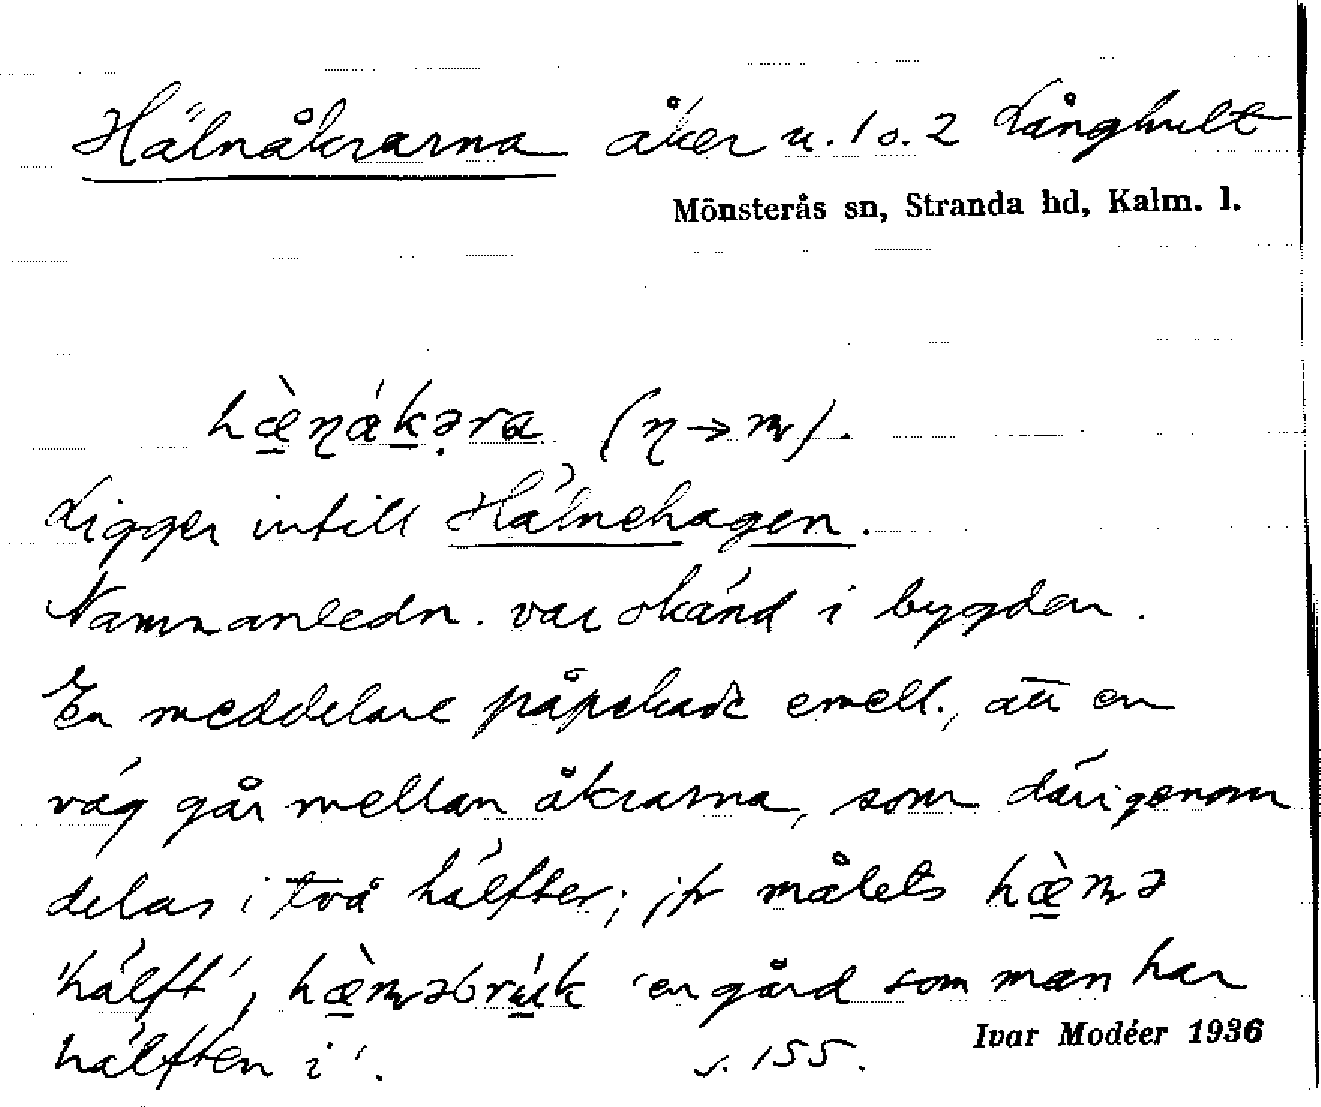 Hälnåkrarna åker u. 1 o. 2 Långhult
Mönsterås sn, Stranda hd, Kalm. l.
Ligger intill Hälnehagen.
Namnanledn. var okänd i bygden.
En meddelare påpekade emell., att en
väg går mellan åkrarna, som därigenom
delas i två hälfter; jfr målets
'hälft', 'en gård som man har
hälften i'. s. 155.
Ivar Modéer 1936